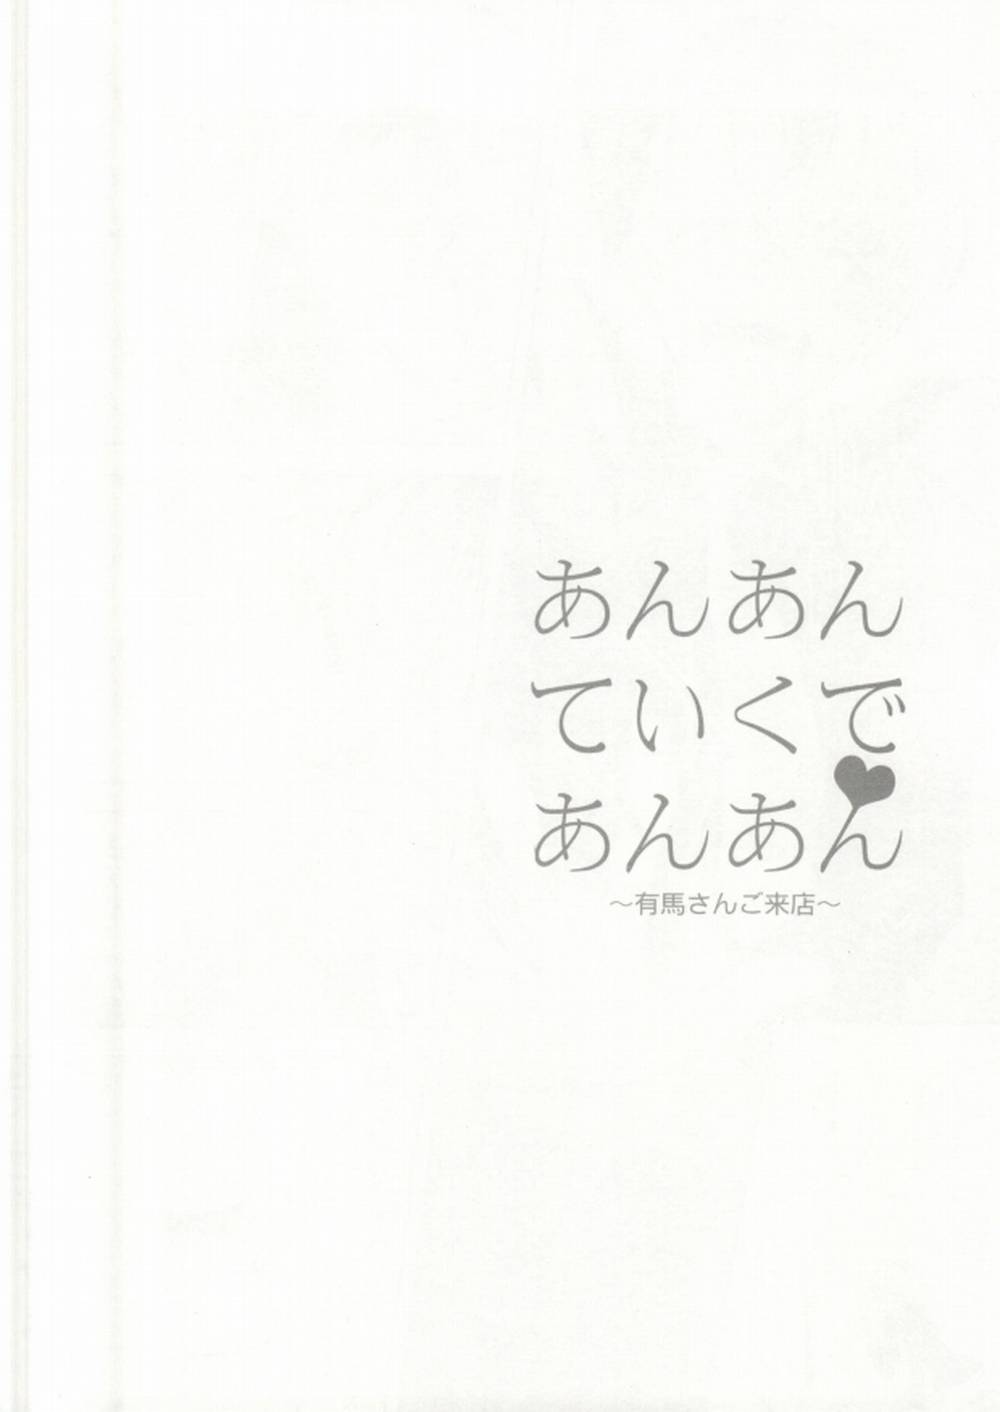 あんあん
ていくで
あんあん♥
～有馬さんご来店～